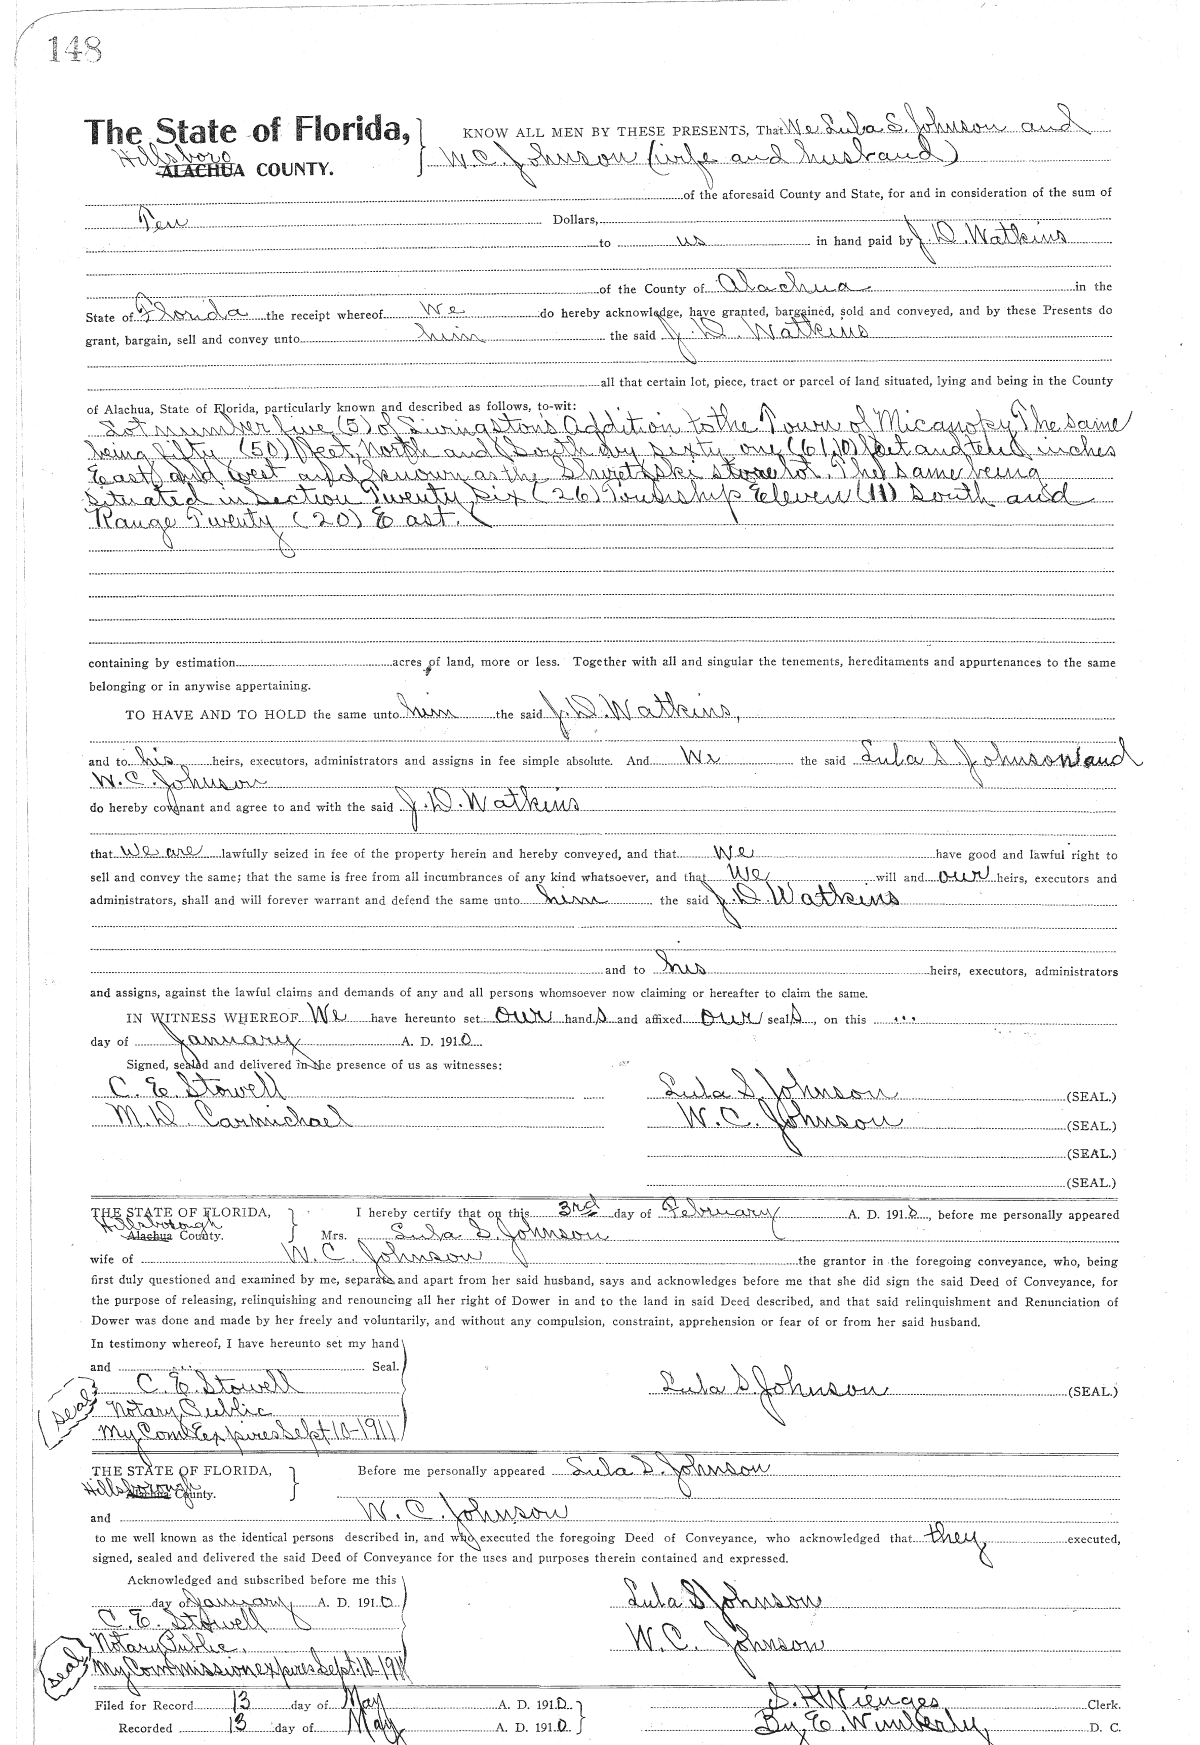 148
The State of Florida, KNOW ALL MEN BY THESE PRESENTS, That We Lula S. Johnson and
Hillsboro ALACHUA COUNTY. W.C. Johnson (wife and husband)
of the aforesaid County and State, for and in consideration of the sum of
Ten Dollars,
to us in hand paid by J. D. Watkins
of the County of Alachua in the
State of Florida the receipt whereof We do hereby acknowledge, have granted, bargained, sold and conveyed, and by these Presents do
grant, bargain, sell and convey unto him the said J. D. Watkins
all that certain lot, piece, tract or parcel of land situated, lying and being in the County
of Alachua, State of Florida, particularly known and described as follows, to-wit:
Lot number five (5) of Livingstons Addition to the Town of Micanopy The same
being fifty (50) feet, North and South by sixty one (61,10) feet and ten inches
East and West and known as the store lot. The same being
situated in Section Twenty Six (26) Township Eleven (11) South and
Range Twenty (20) East.
containing by estimation acres of land, more or less. Together with all and singular the tenements, hereditaments and appurtenances to the same
belonging or in anywise appertaining.
TO HAVE AND TO HOLD the same unto him the said J. D. Watkins,
and to his heirs, executors, administrators and assigns in fee simple absolute. And We the said Lula S Johnson and
W.C. Johnson
do hereby covenant and agree to and with the said J. D. Watkins
that we are lawfully seized in fee of the property herein and hereby conveyed, and that we have good and lawful right to
sell and convey the same; that the same is free from all incumbrances of any kind whatsoever, and that We will and our heirs, executors and
administrators, shall and will forever warrant and defend the same unto him the said J. D. Watkins
and to his heirs, executors, administrators
and assigns, against the lawful claims and demands of any and all persons whomsoever now claiming or hereafter to claim the same.
IN WITNESS WHEREOF We have hereunto set our hands and affixed our seals, on this ...
day of January A. D. 1910
Signed, sealed and delivered in the presence of us as witnesses:
C. E. Stowell Lula S. Johnson (SEAL.)
M. D. Carmichael W. C. Johnson (SEAL.)
(SEAL.)
(SEAL.)
THE STATE OF FLORIDA, I hereby certify that on this 3rd day of February A. D. 1910, before me personally appeared
Hillsborough Alachua County. Mrs. Lula S. Johnson
wife of W. C. Johnson the grantor in the foregoing conveyance, who, being
first duly questioned and examined by me, separate and apart from her said husband, says and acknowledges before me that she did sign the said Deed of Conveyance, for
the purpose of releasing, relinquishing and renouncing all her right of Dower in and to the land in said Deed described, and that said relinquishment and Renunciation of
Dower was done and made by her freely and voluntarily, and without any compulsion, constraint, apprehension or fear of or from her said husband.
In testimony whereof, I have hereunto set my hand
and ... Seal.
C. E. Stowell Lula S. Johnson (SEAL.)
(seal) Notary Public
My Com Expires Sept 10-1911
THE STATE OF FLORIDA, Before me personally appeared Lula S. Johnson
Hillsborough Alachua County.
and W. C. Johnson
to me well known as the identical persons described in, and who executed the foregoing Deed of Conveyance, who acknowledged that they executed,
signed, sealed and delivered the said Deed of Conveyance for the uses and purposes therein contained and expressed.
Acknowledged and subscribed before me this
day of January A. D. 1910 Lula S Johnson
C. E. Stowell
Notary Public. W. C. Johnson
seal My Commission expires Sept. 10-1911
Filed for Record 13 day of May A. D. 1910 S. H Wienges Clerk.
Recorded 13 day of May A. D. 1910 By E. Wimberly D. C.